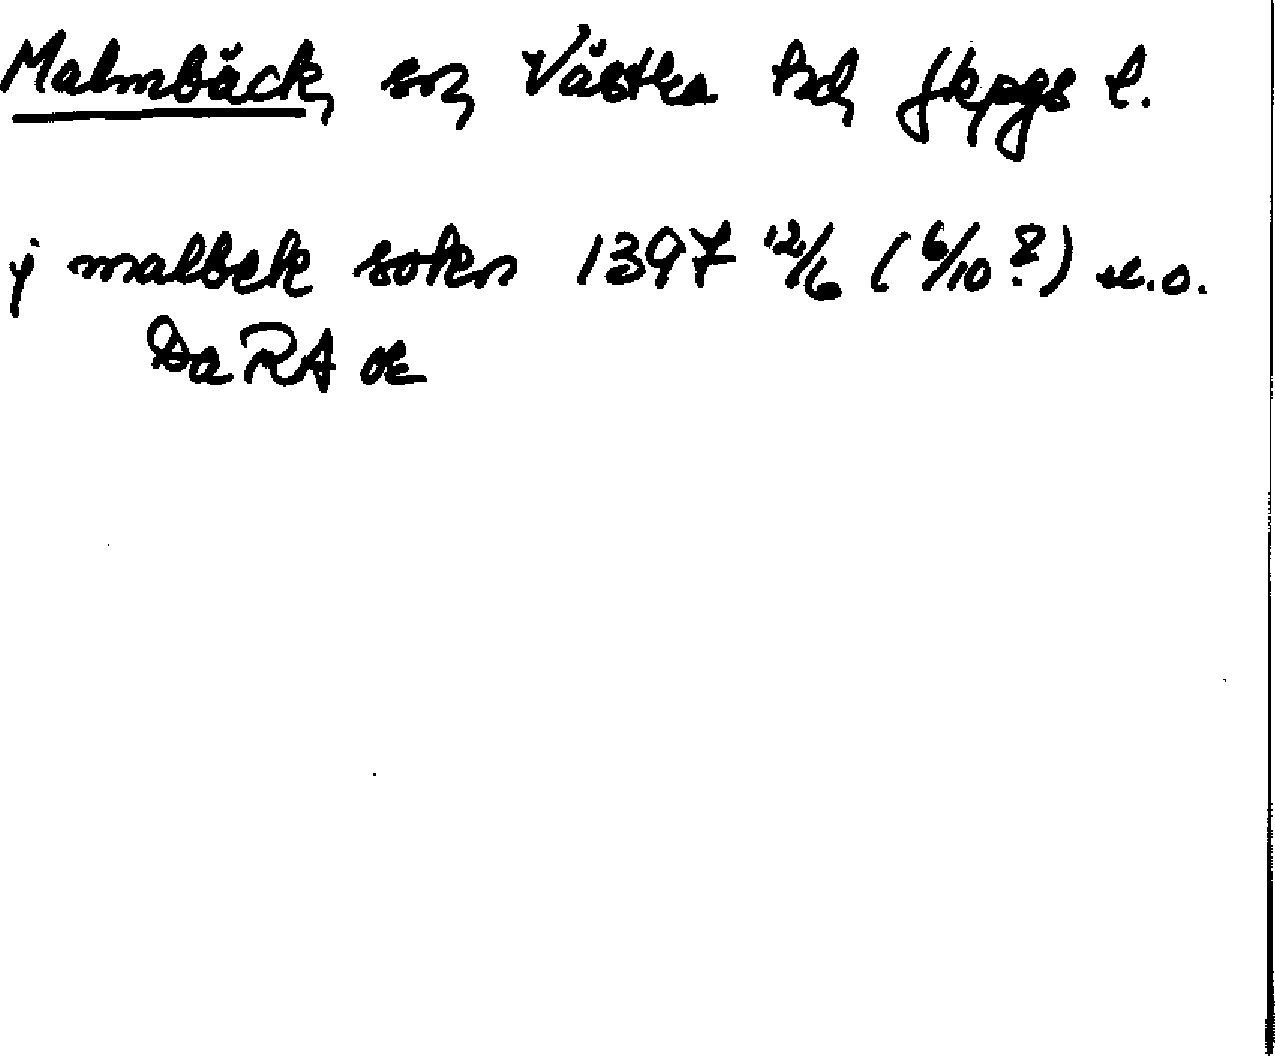 Malmbäck, sn, Västra hd, Jkpgs l.
j malbek sokn 1397 12/6 (6/10?) u.o.
DaRA or